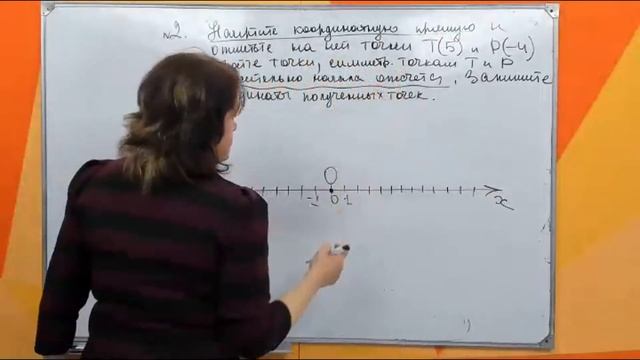 №2. Начертите координатную прямую и
отметьте на ней точки Т(5) и Р(-4)
точки, симметр. точкам Т и Р
начала отсчёта. Запишите
полученных точек.
О
-1 0 1 х